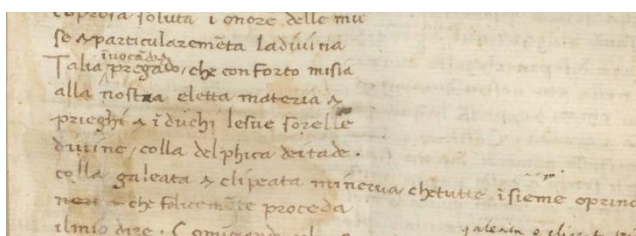 in prosa soluta i onore delle mu
se & particularemēta la divina
Talia invocādo
pregādo, che conforto mi sia
alla nostra eletta materia &
prieghi & īduchi le sue sorelle
divine, colla delphica deitade.
colla galeata & clipeata minerva che tutte īsieme
neri & che felicemēte proceda
il mio dire. Comiciando
galeata o clipeata